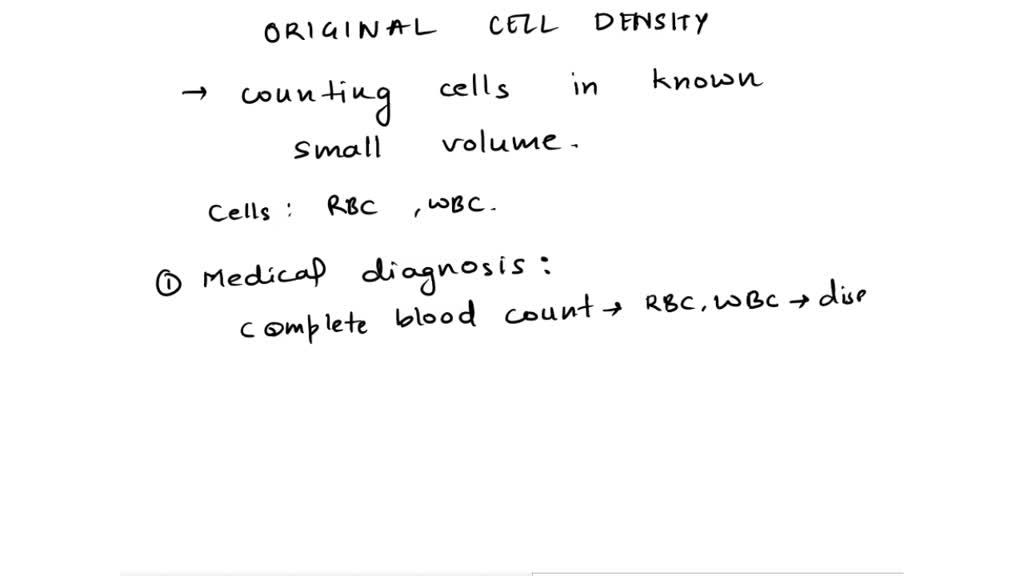 ORIGINAL CELL DENSITY
→ counting cells in known
small volume.
Cells: RBC, WBC.
① Medical diagnosis:
complete blood count → RBC, WBC → dise